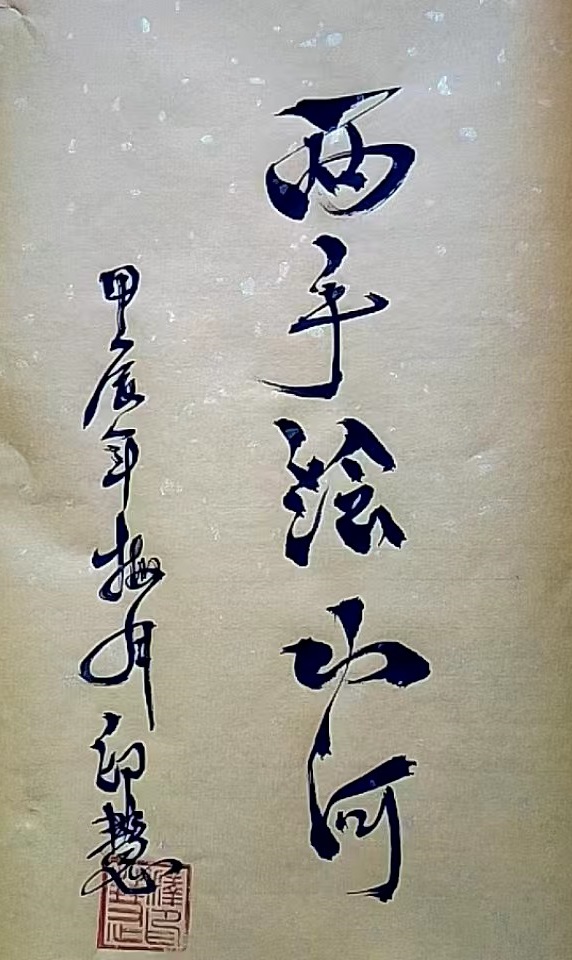 两手绘山河
甲辰年梅月印慧